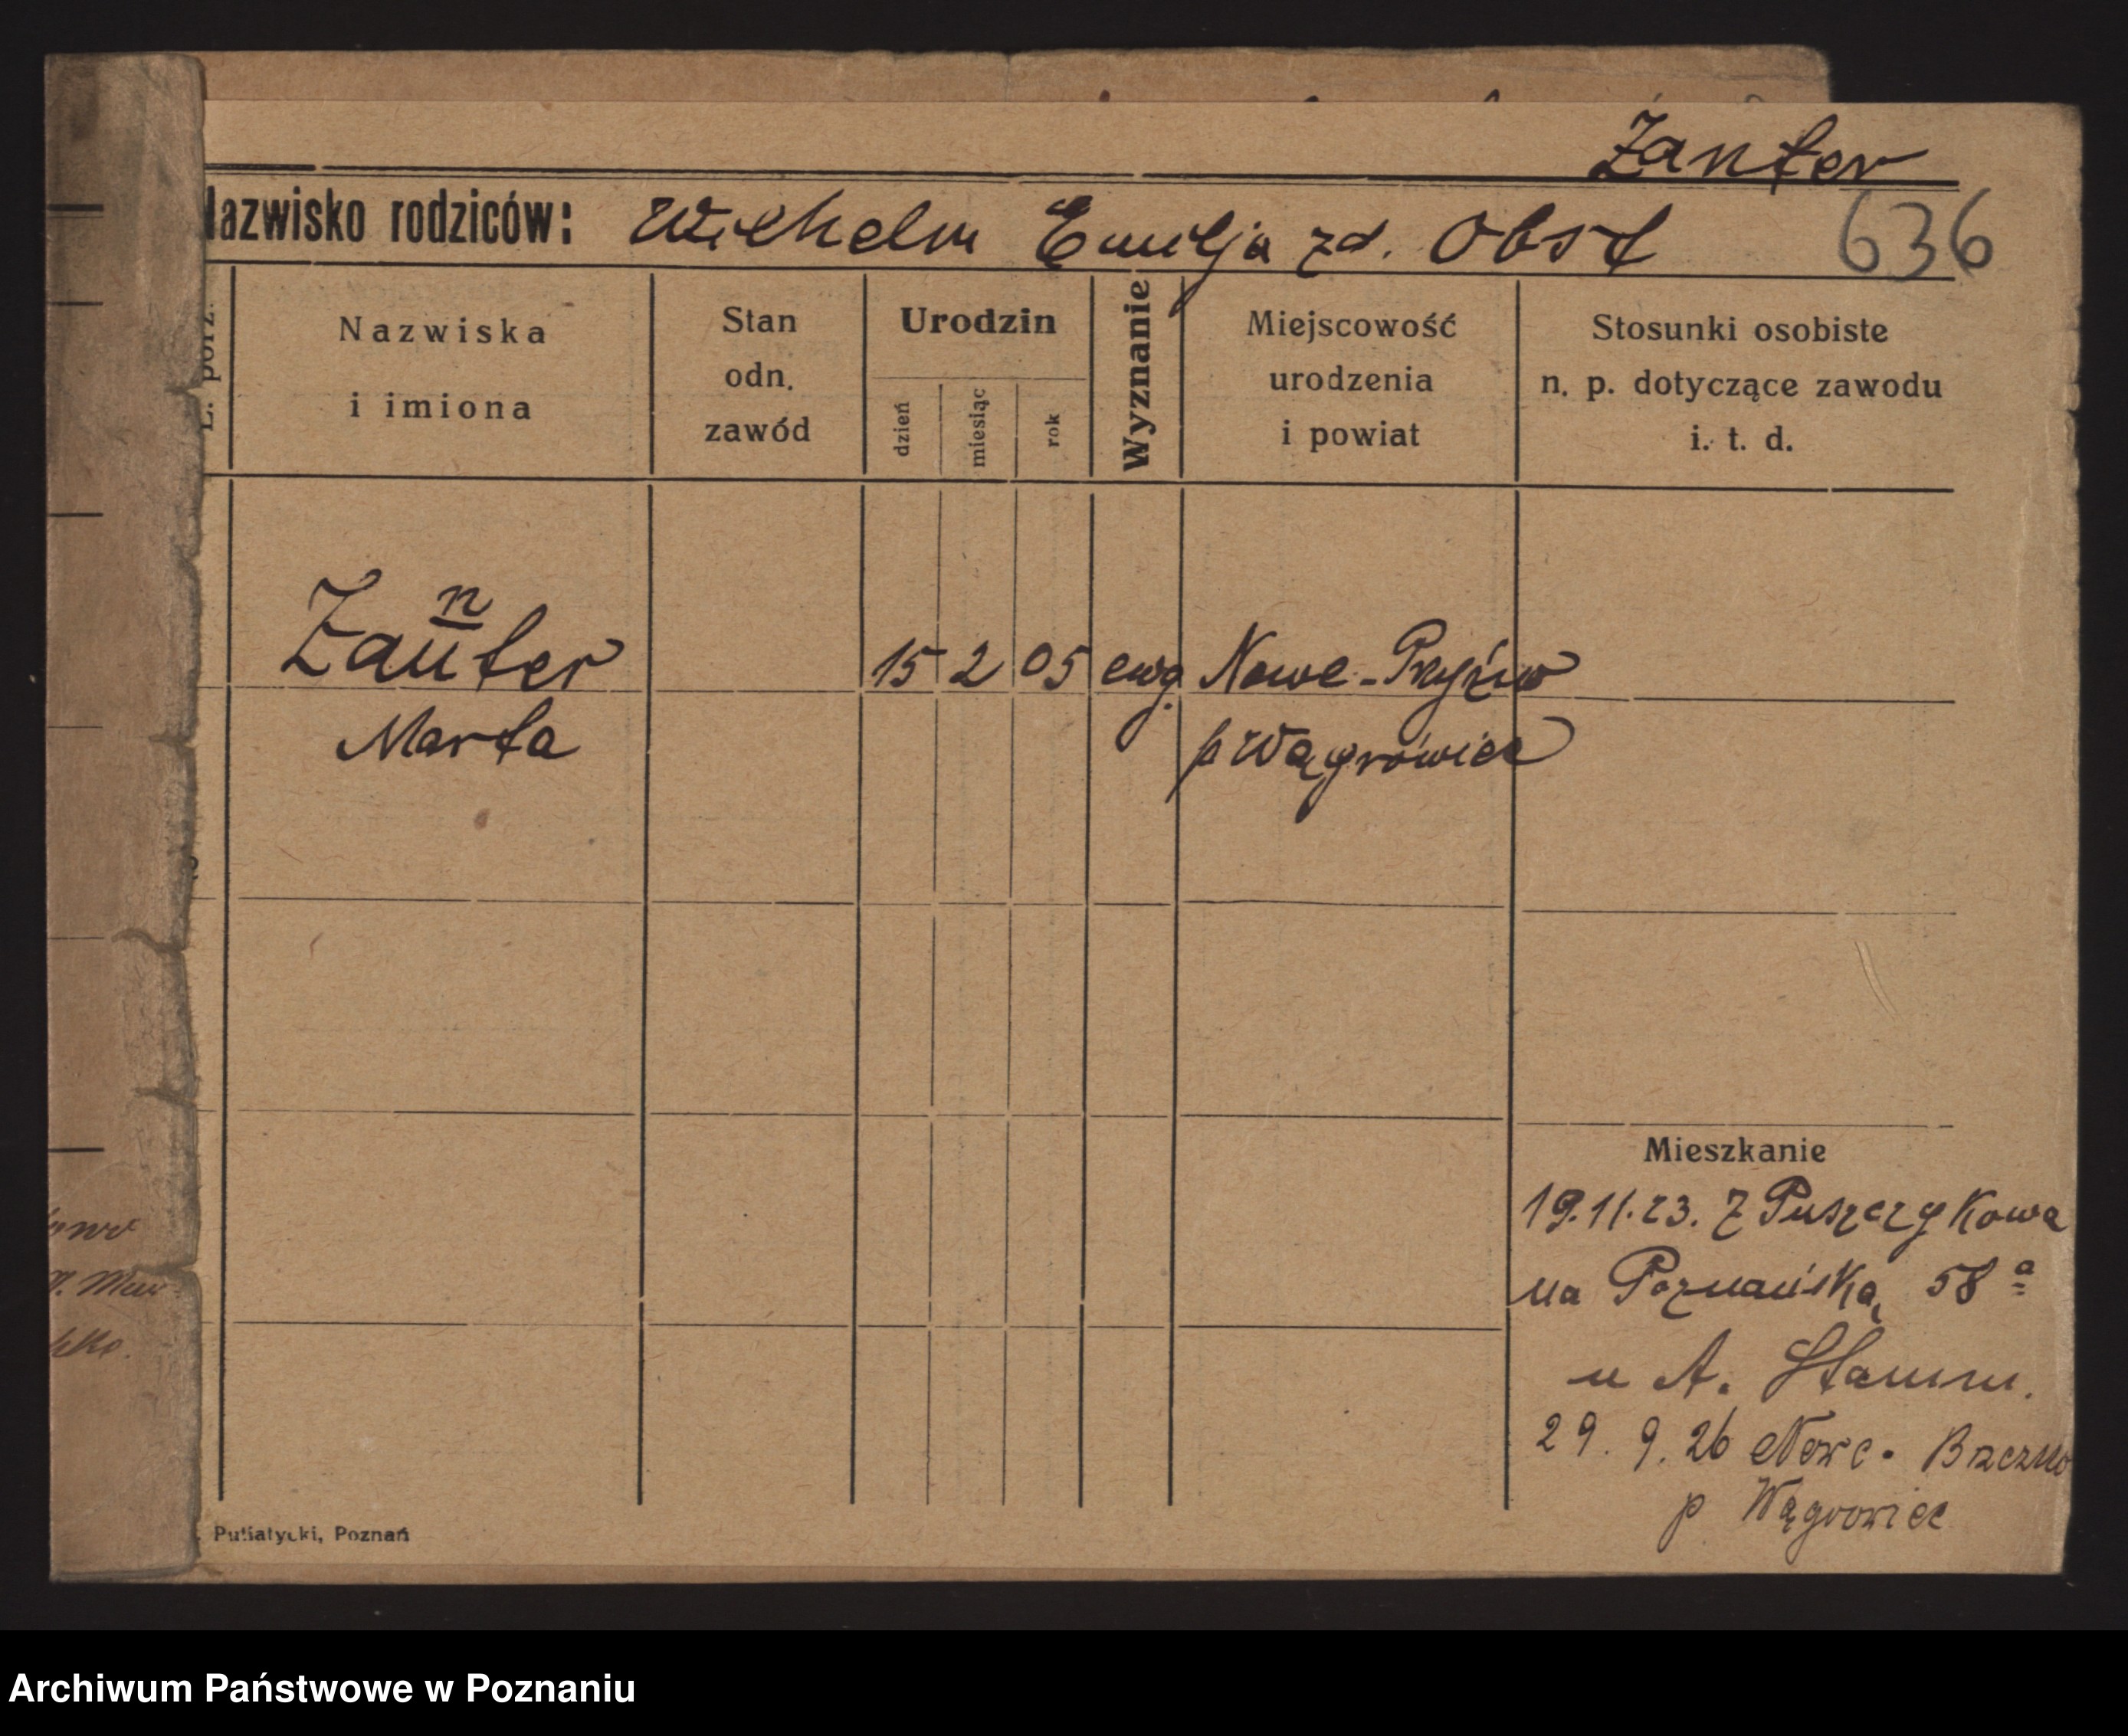 Zanter
Nazwisko rodziców: Wilhelm Emilja zd. Obst 636
L. porz.
Nazwiska i imiona
Stan odn. zawód
Urodzin
dzień miesiąc rok
Wyznanie
Miejscowość urodzenia i powiat
Stosunki osobiste n. p. dotyczące zawodu i. t. d.
n
Zauter 15 2 05 ewg. Nowe-
Marta p Wągrówiec
Mieszkanie
19.11.23. Z Puszczykowa
na Poznańską 58a
u A. Stamm.
29. 9. 26 Nowe - Brzezno
p Wągrowiec
Putiatycki, Poznań
Archiwum Państwowe w Poznaniu